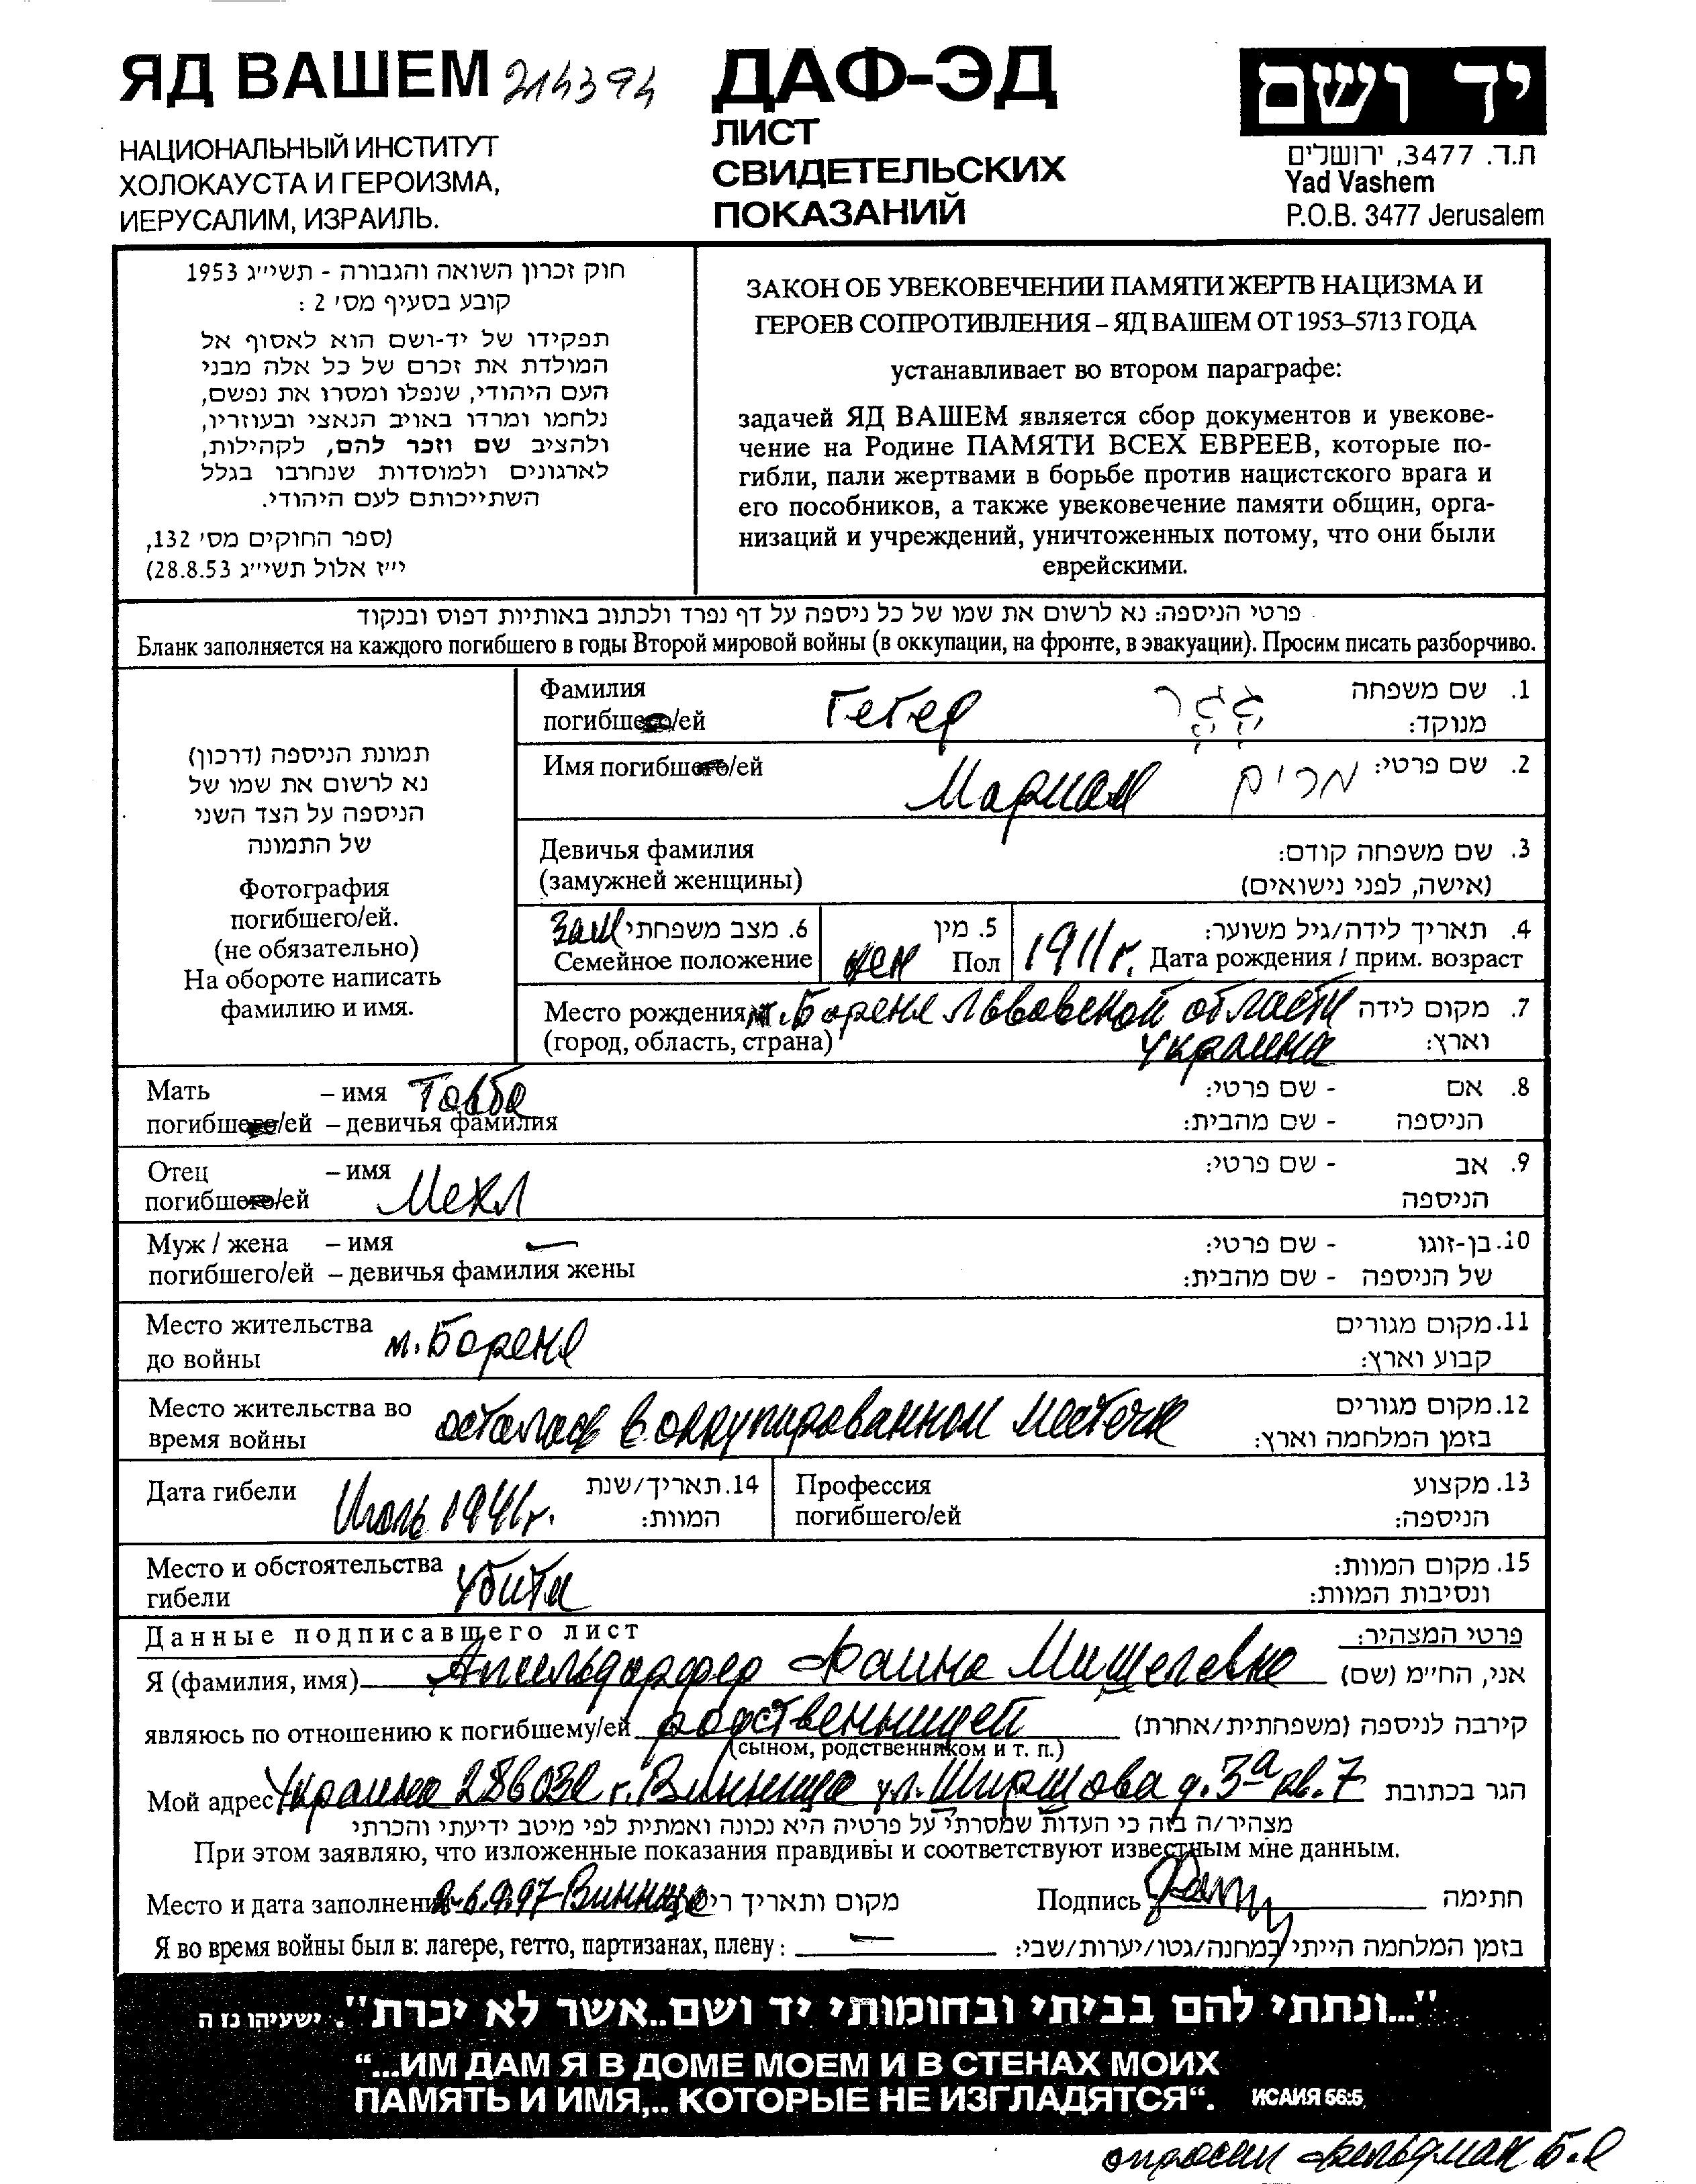 ЯД ВАШЕМ 214394
НАЦИОНАЛЬНЫЙ ИНСТИТУТ
ХОЛОКАУСТА И ГЕРОИЗМА,
ИЕРУСАЛИМ, ИЗРАИЛЬ.
ДАФ-ЭД
ЛИСТ
СВИДЕТЕЛЬСКИХ
ПОКАЗАНИЙ
יד ושם
ת.ד. 3477, ירושלים
Yad Vashem
P.O.B. 3477 Jerusalem
חוק זכרון השואה והגבורה - תשי״ג 1953
קובע בסעיף מס׳ 2 :
תפקידו של יד-ושם הוא לאסוף אל
המולדת את זכרם של כל אלה מבני
העם היהודי, שנפלו ומסרו את נפשם,
נלחמו ומרדו באויב הנאצי ובעוזריו,
ולהציב שם וזכר להם, לקהילות,
לארגונים ולמוסדות שנחרבו בגלל
השתייכותם לעם היהודי.
(ספר החוקים מס׳ 132,
י״ז אלול תשי״ג 28.8.53)
ЗАКОН ОБ УВЕКОВЕЧЕНИИ ПАМЯТИ ЖЕРТВ НАЦИЗМА И
ГЕРОЕВ СОПРОТИВЛЕНИЯ – ЯД ВАШЕМ ОТ 1953–5713 ГОДА
устанавливает во втором параграфе:
задачей ЯД ВАШЕМ является сбор документов и увекове-
чение на Родине ПАМЯТИ ВСЕХ ЕВРЕЕВ, которые по-
гибли, пали жертвами в борьбе против нацистского врага и
его пособников, а также увековечение памяти общин, орга-
низаций и учреждений, уничтоженных потому, что они были
еврейскими.
פרטי הניספה: נא לרשום את שמו של כל ניספה על דף נפרד ולכתוב באותיות דפוס ובנקוד
Бланк заполняется на каждого погибшего в годы Второй мировой войны (в оккупации, на фронте, в эвакуации). Просим писать разборчиво.
תמונת הניספה (דרכון)
נא לרשום את שמו של
הניספה על הצד השני
של התמונה
Фотография
погибшего/ей.
(не обязательно)
На обороте написать
фамилию и имя.
Фамилия Гегер גגר 1. שם משפחה
погибшего/ей מנוקד:
Имя погибшего/ей Мариам מרים 2. שם פרטי:
Девичья фамилия 3. שם משפחה קודם:
(замужней женщины) (אישה, לפני נישואים)
зам 6. מצב משפחתי 5. מין 4. תאריך לידה/גיל משוער:
Семейное положение жен Пол 1911г. Дата рождения / прим. возраст
Место рождения м. Борене Львовской области 7. מקום לידה
(город, область, страна) Украина וארץ:
Мать – имя Товба - שם פרטי: 8. אם
погибшего/ей – девичья фамилия - שם מהבית: הניספה
Отец – имя Мехл - שם פרטי: 9. אב
погибшего/ей הניספה
Муж / жена – имя — - שם פרטי: 10. בן-זוגו
погибшего/ей – девичья фамилия жены - שם מהבית: של הניספה
Место жительства м. Борене 11. מקום מגורים
до войны קבוע וארץ:
Место жительства во осталась в оккупированном местечке 12. מקום מגורים
время войны בזמן המלחמה וארץ:
Дата гибели Июль 1941г. 14. תאריך/שנת המוות:
Профессия 13. מקצוע
погибшего/ей הניספה:
Место и обстоятельства убита 15. מקום המוות:
гибели ונסיבות המוות:
Данные подписавшего лист פרטי המצהיר:
Я (фамилия, имя) Апельдорфер Фаина Мишелевна אני, הח״מ (שם)
являюсь по отношению к погибшему/ей родственницей קירבה לניספה (משפחתית/אחרת)
(сыном, родственником и т. п.)
Мой адрес Украина 286032 г. Винница ул. Ширшова д. 3а кв. 7 הגר בכתובת
מצהיר/ה בזה כי העדות שמסרתי על פרטיה היא נכונה ואמתית לפי מיטב ידיעתי והכרתי
При этом заявляю, что изложенные показания правдивы и соответствуют известным мне данным.
Место и дата заполнения Винница מקום ותאריך Подпись חתימה
Я во время войны был в: лагере, гетто, партизанах, плену : — בזמן המלחמה הייתי במחנה/גטו/יערות/שבי:
"...ונתתי להם בביתי ובחומותי יד ושם..אשר לא יכרת". ישעיהו נז ה
“...ИМ ДАМ Я В ДОМЕ МОЕМ И В СТЕНАХ МОИХ
ПАМЯТЬ И ИМЯ,.. КОТОРЫЕ НЕ ИЗГЛАДЯТСЯ“. ИСАИЯ 56:5
опросил Фельдман Б.Я